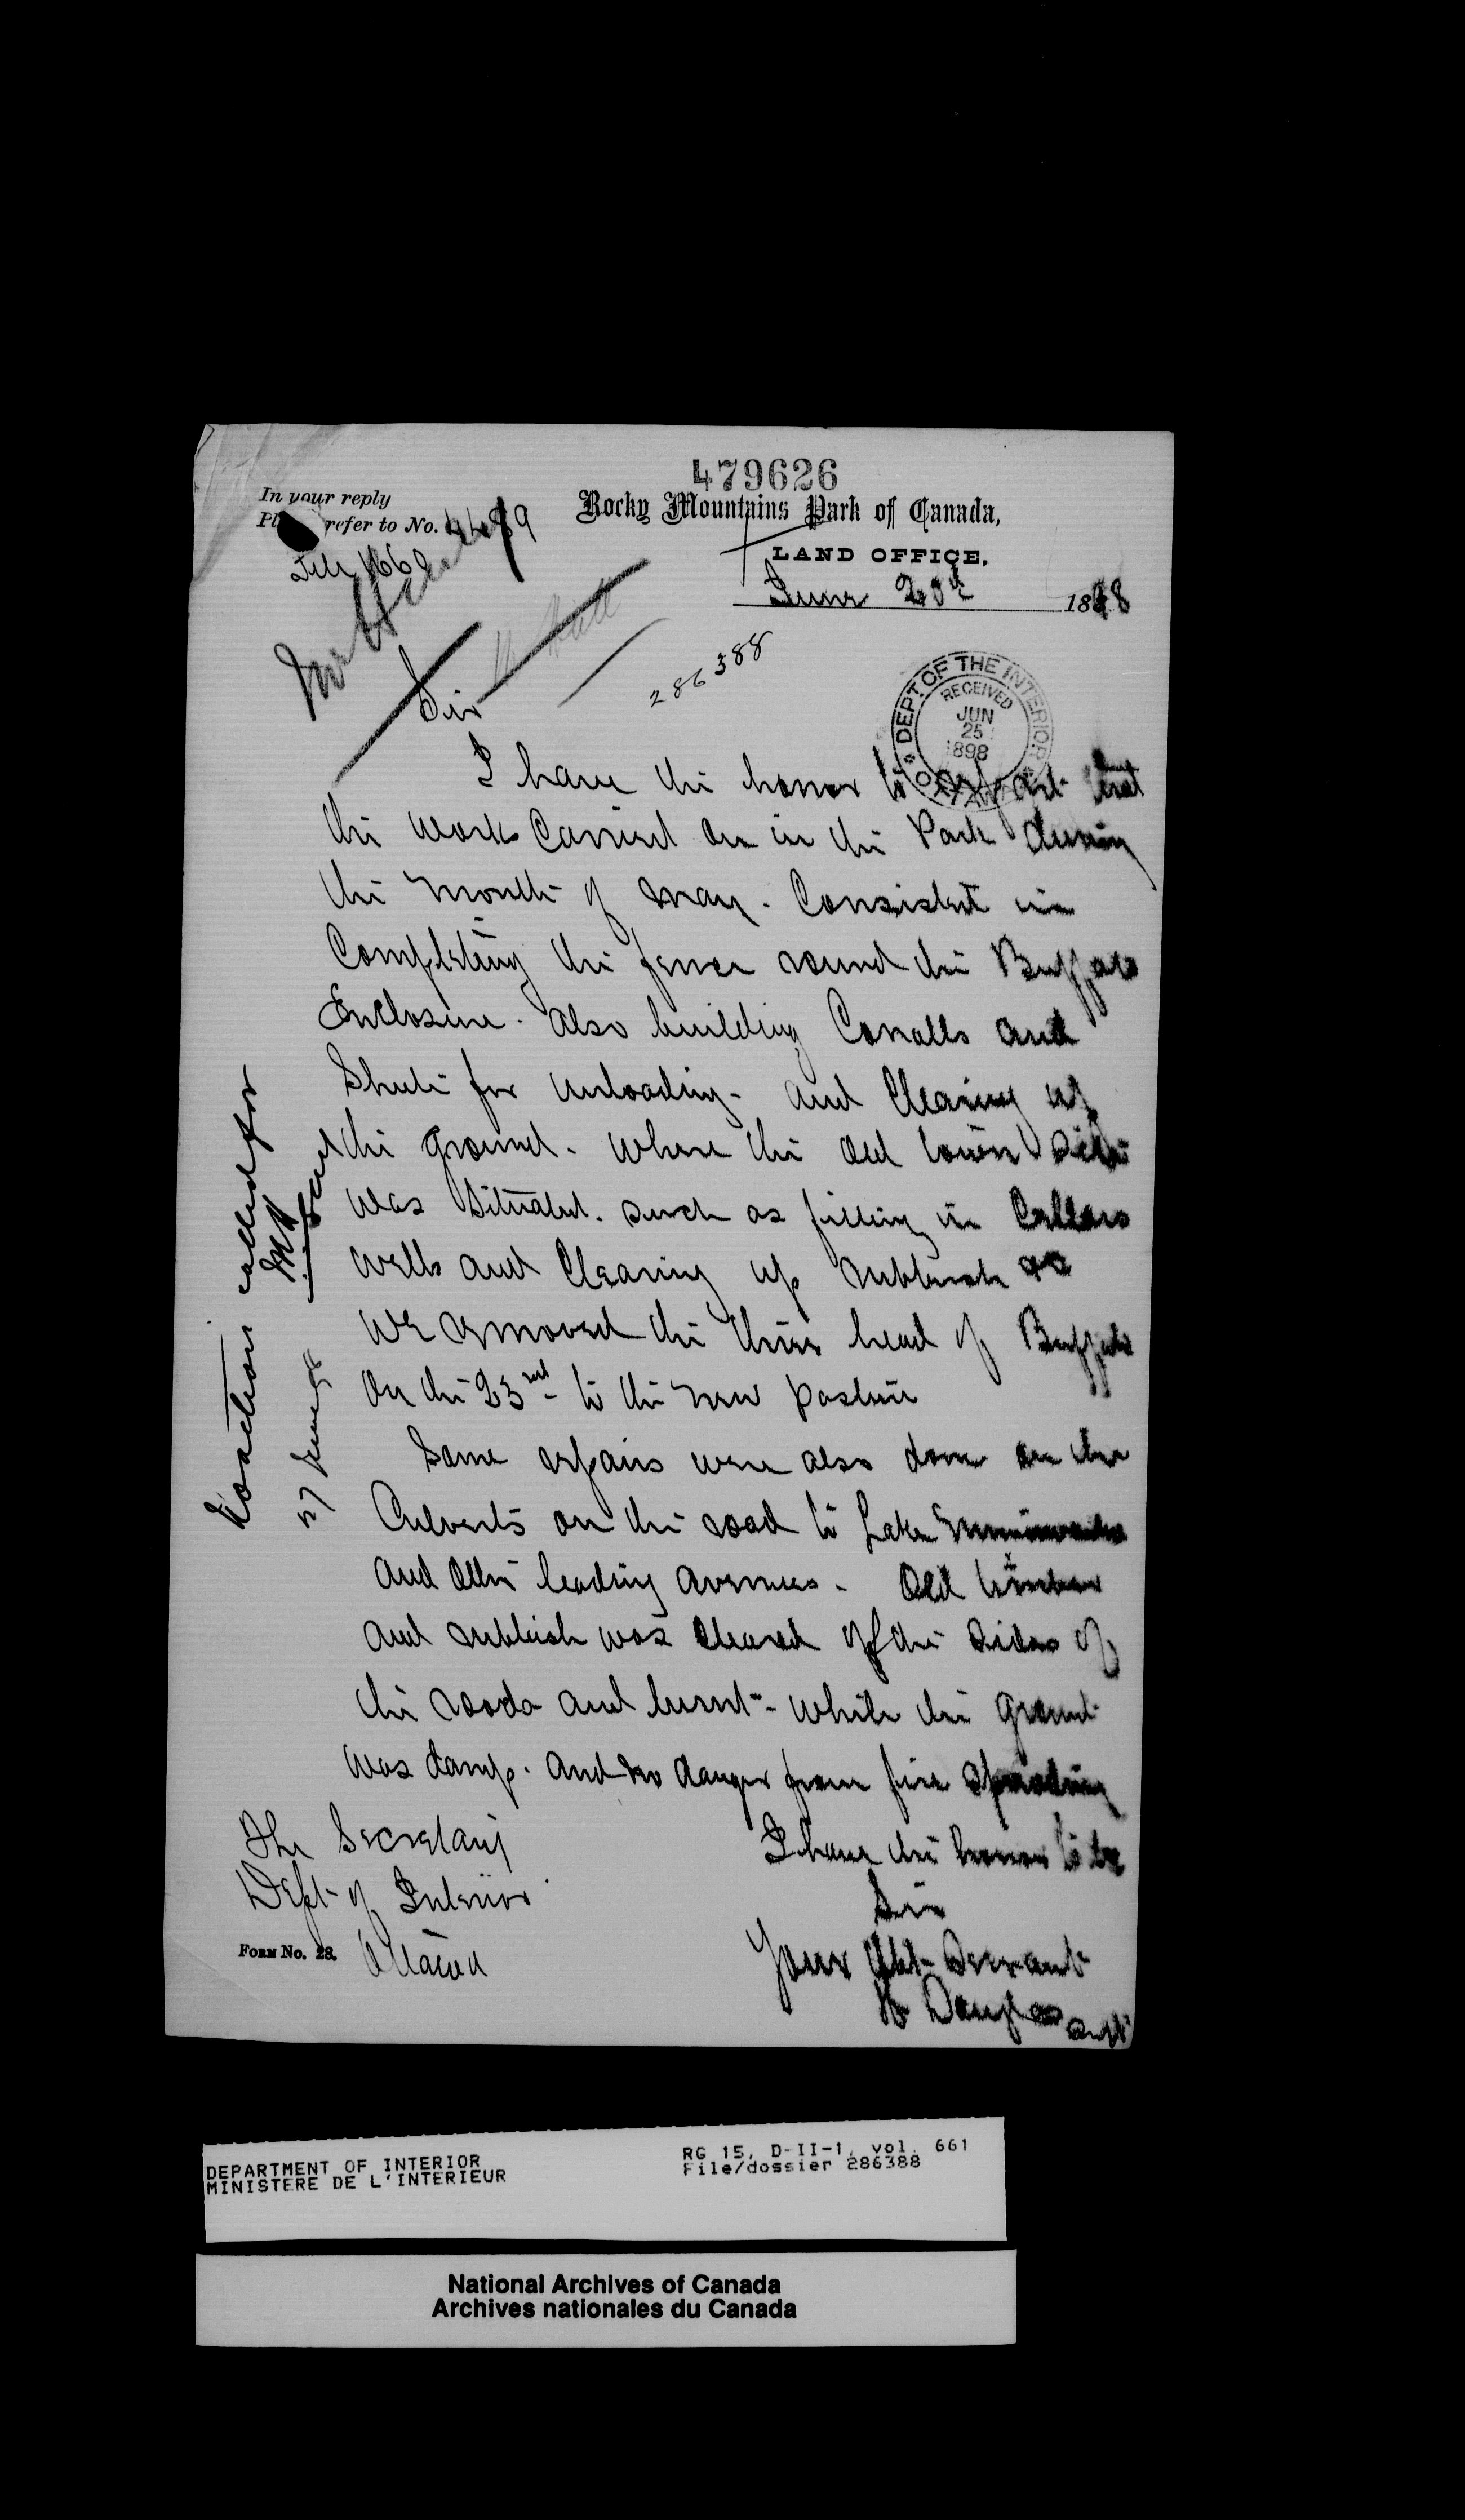 479626
In your reply
refer to No. 4489
File 1660
Rocky Mountains Park of Canada,
LAND OFFICE,
June 20th 1898
286388
DEPT. OF THE INTERIOR
RECEIVED
JUN
25
1898
OTTAWA
Sir
I have the honor to report that
the work carried on in the Park during
the month of May. Consisted in
Completing the fence round the Buffalo
Enclosure. Also building Corralls and
Shute for unloading - and Clearing up
the ground. where the old town site
was situated. such as filling in Cellars
wells and Clearing up rubbish &c
We removed the three head of Buffalo
On the 23rd - to the new pasture
Some repairs were also done on the
Culverts on the road to Lake Minnewanka
and other leading avenues - Old timber
and rubbish was cleared off the sides of
the roads and burnt - while the ground
was damp. and no danger from fire spreading
I have the honor to be
Sir
Your Obt Servant
H Douglas Supt
The Secretary
Dept of Interior
Ottawa
FORM No. 28.
No action called for
27 June 98
DEPARTMENT OF INTERIOR
MINISTERE DE L'INTERIEUR
RG 15, D-II-1, vol. 661
File/dossier 286388
National Archives of Canada
Archives nationales du Canada